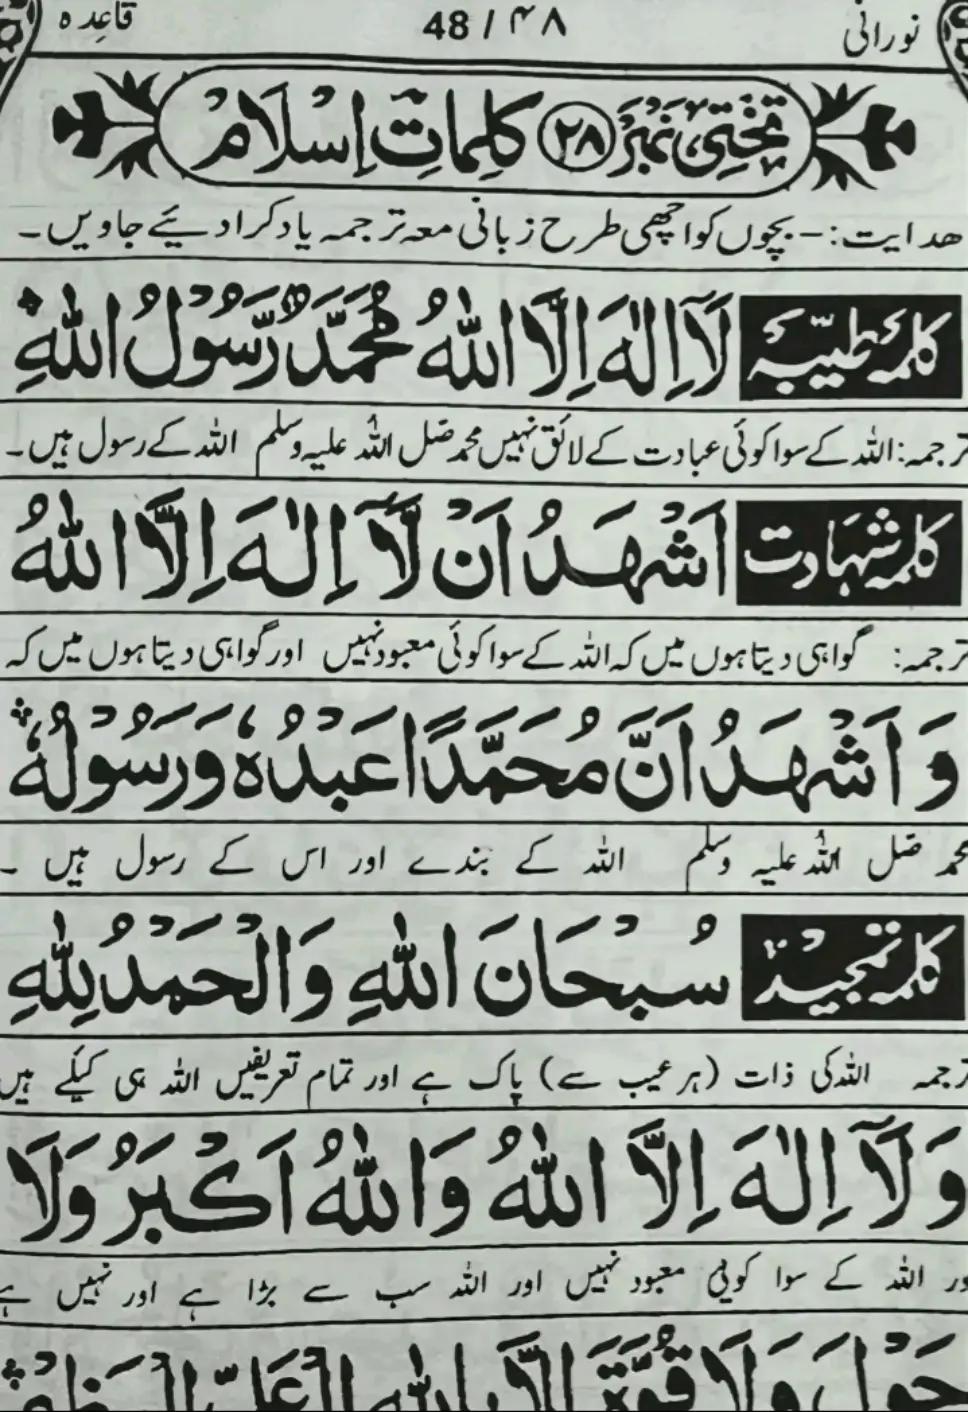 نورانی ۴۸ / 48 قاعدہ
تختی نمبر ۲۸ کلمات اسلام
ھدایت:- بچوں کو اچھی طرح زبانی معہ ترجمہ یاد کرا دیئے جاویں۔
کلمہ طیّبہ لَآ اِلٰهَ اِلَّا اللّٰهُ مُحَمَّدٌ رَّسُوْلُ اللّٰهِ
ترجمہ: اللہ کے سوا کوئی عبادت کے لائق نہیں محمد صلی اللہ علیہ وسلم اللہ کے رسول ہیں۔
کلمہ شہادت اَشْهَدُ اَنْ لَّآ اِلٰهَ اِلَّا اللّٰهُ
ترجمہ: گواہی دیتا ہوں میں کہ اللہ کے سوا کوئی معبود نہیں اور گواہی دیتا ہوں میں کہ
وَ اَشْهَدُ اَنَّ مُحَمَّدًا عَبْدُهٗ وَرَسُوْلُهٗ
محمد صلی اللہ علیہ وسلم اللہ کے بندے اور اس کے رسول ہیں ۔
کلمہ تمجید سُبْحَانَ اللّٰهِ وَالْحَمْدُ لِلّٰهِ
ترجمہ اللہ کی ذات (ہر عیب سے) پاک ہے اور تمام تعریفیں اللہ ہی کیلئے ہیں
وَ لَآ اِلٰهَ اِلَّا اللّٰهُ وَاللّٰهُ اَكْبَرُ وَلَا
اور اللہ کے سوا کوئی معبود نہیں اور اللہ سب سے بڑا ہے اور نہیں ہے
حَوْلَ وَلَا قُوَّةَ اِلَّا بِاللّٰهِ الْعَلِيِّ الْعَظِيْمِ